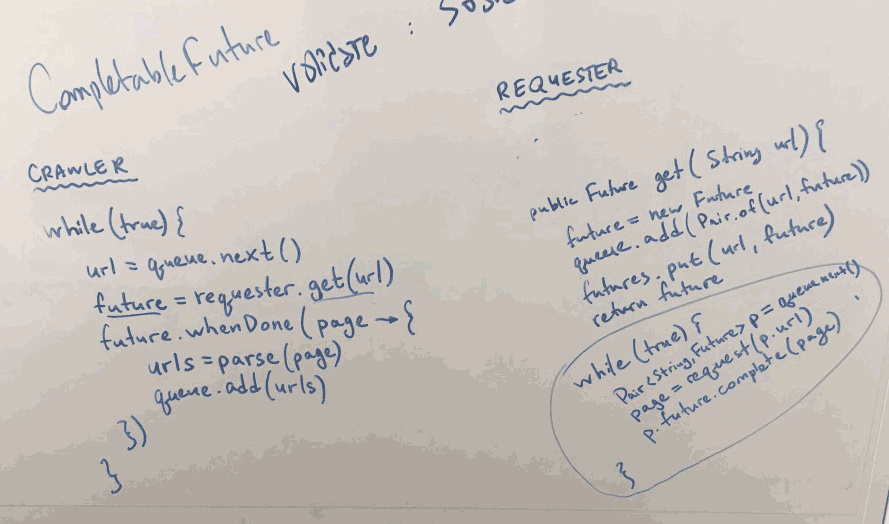 CompletableFuture
validate :
CRAWLER
while(true){
url = queue.next()
future = requester.get(url)
future.whenDone(page → {
urls = parse(page)
queue.add(urls)
})
}
REQUESTER
public Future get(String url){
future = new Future
queue.add(Pair.of(url,future))
futures.put(url, future)
return future
while(true){
Pair<String,Future> p = queue.next()
page = request(p.url)
p.future.complete(page)
}